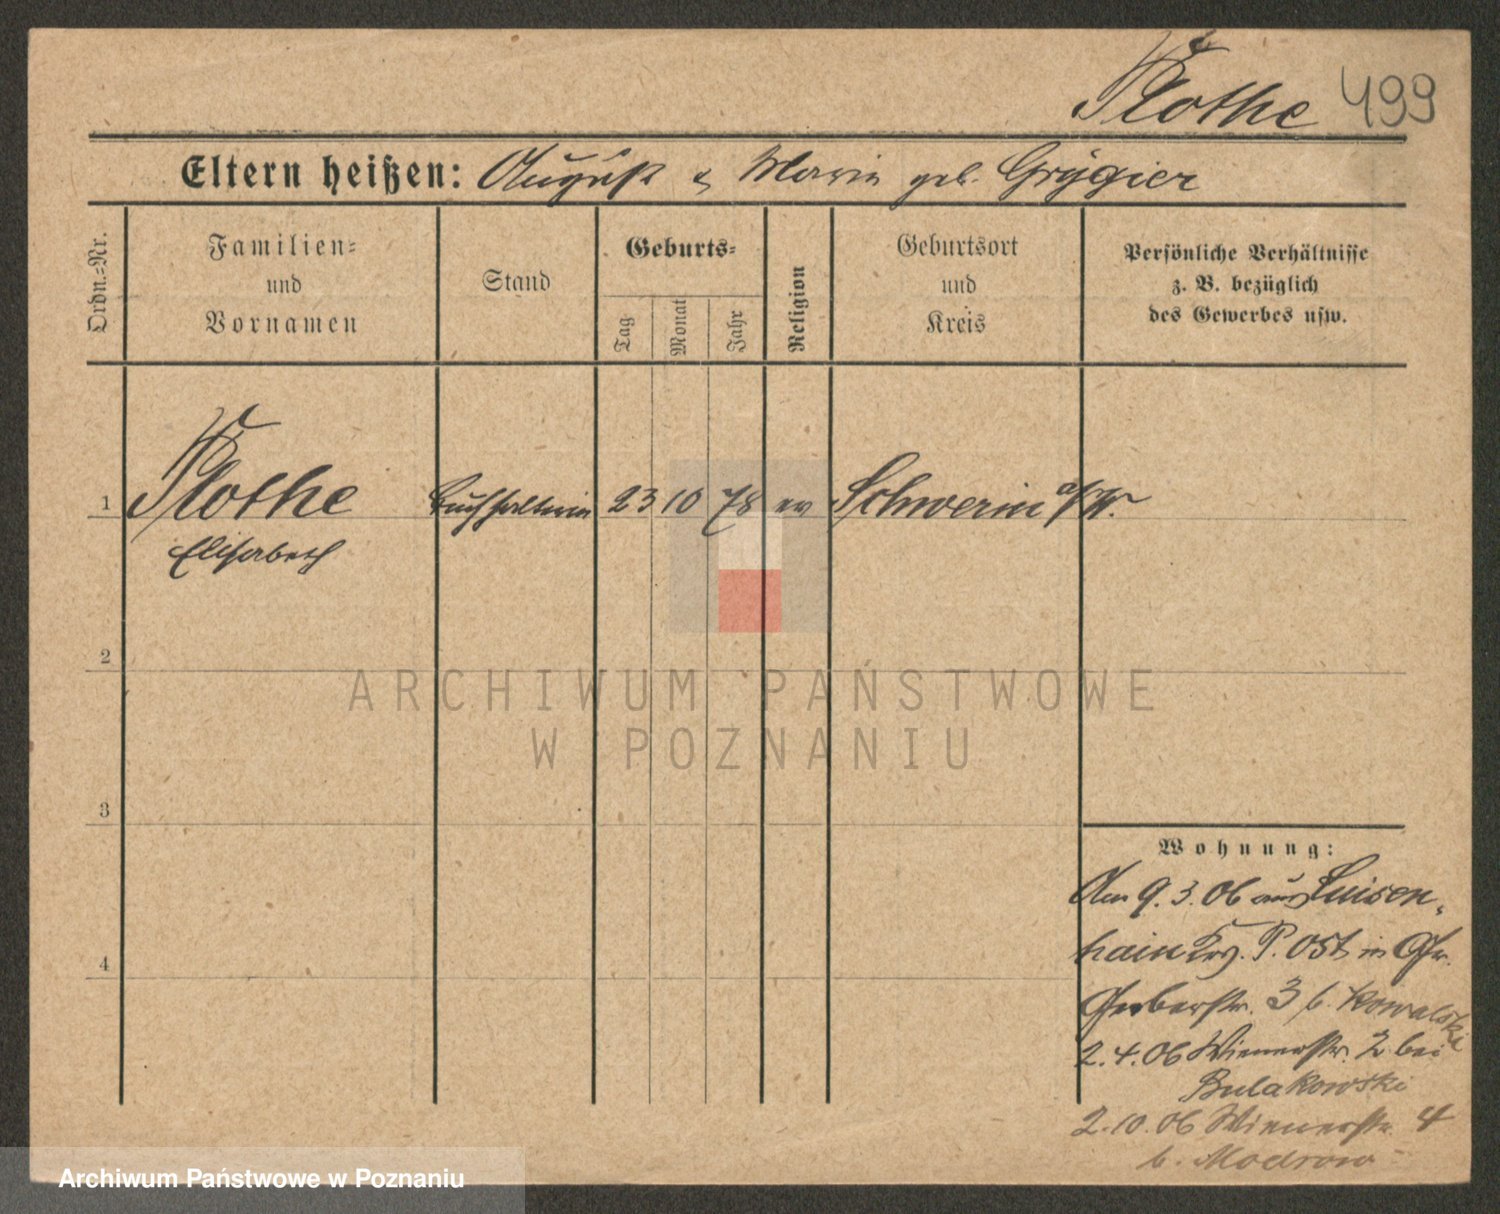 Plothe 499
Eltern heißen: August & Marie geb. Grygier
Ordn.=Nr.
Familien=
und
Vornamen
Stand
Geburts=
Tag
Monat
Jahr
Religion
Geburtsort
und
Kreis
Persönliche Verhältnisse
z. B. bezüglich
des Gewerbes usw.
1 Plothe Buchhalterin 23 10 78 ev Schwerin a/W.
Elisabeth
2
3
4
Wohnung:
Am 9.3.06 aus Luisen-
hain Krs. P. Ost in Gr.
Gerberstr. 3 b. Kowalski
2.4.06 Wienerstr. 2 bei
Bulakowski
2.10.06 Wienerstr. 4
b. Modrow
ARCHIWUM PAŃSTWOWE
W POZNANIU
Archiwum Państwowe w Poznaniu